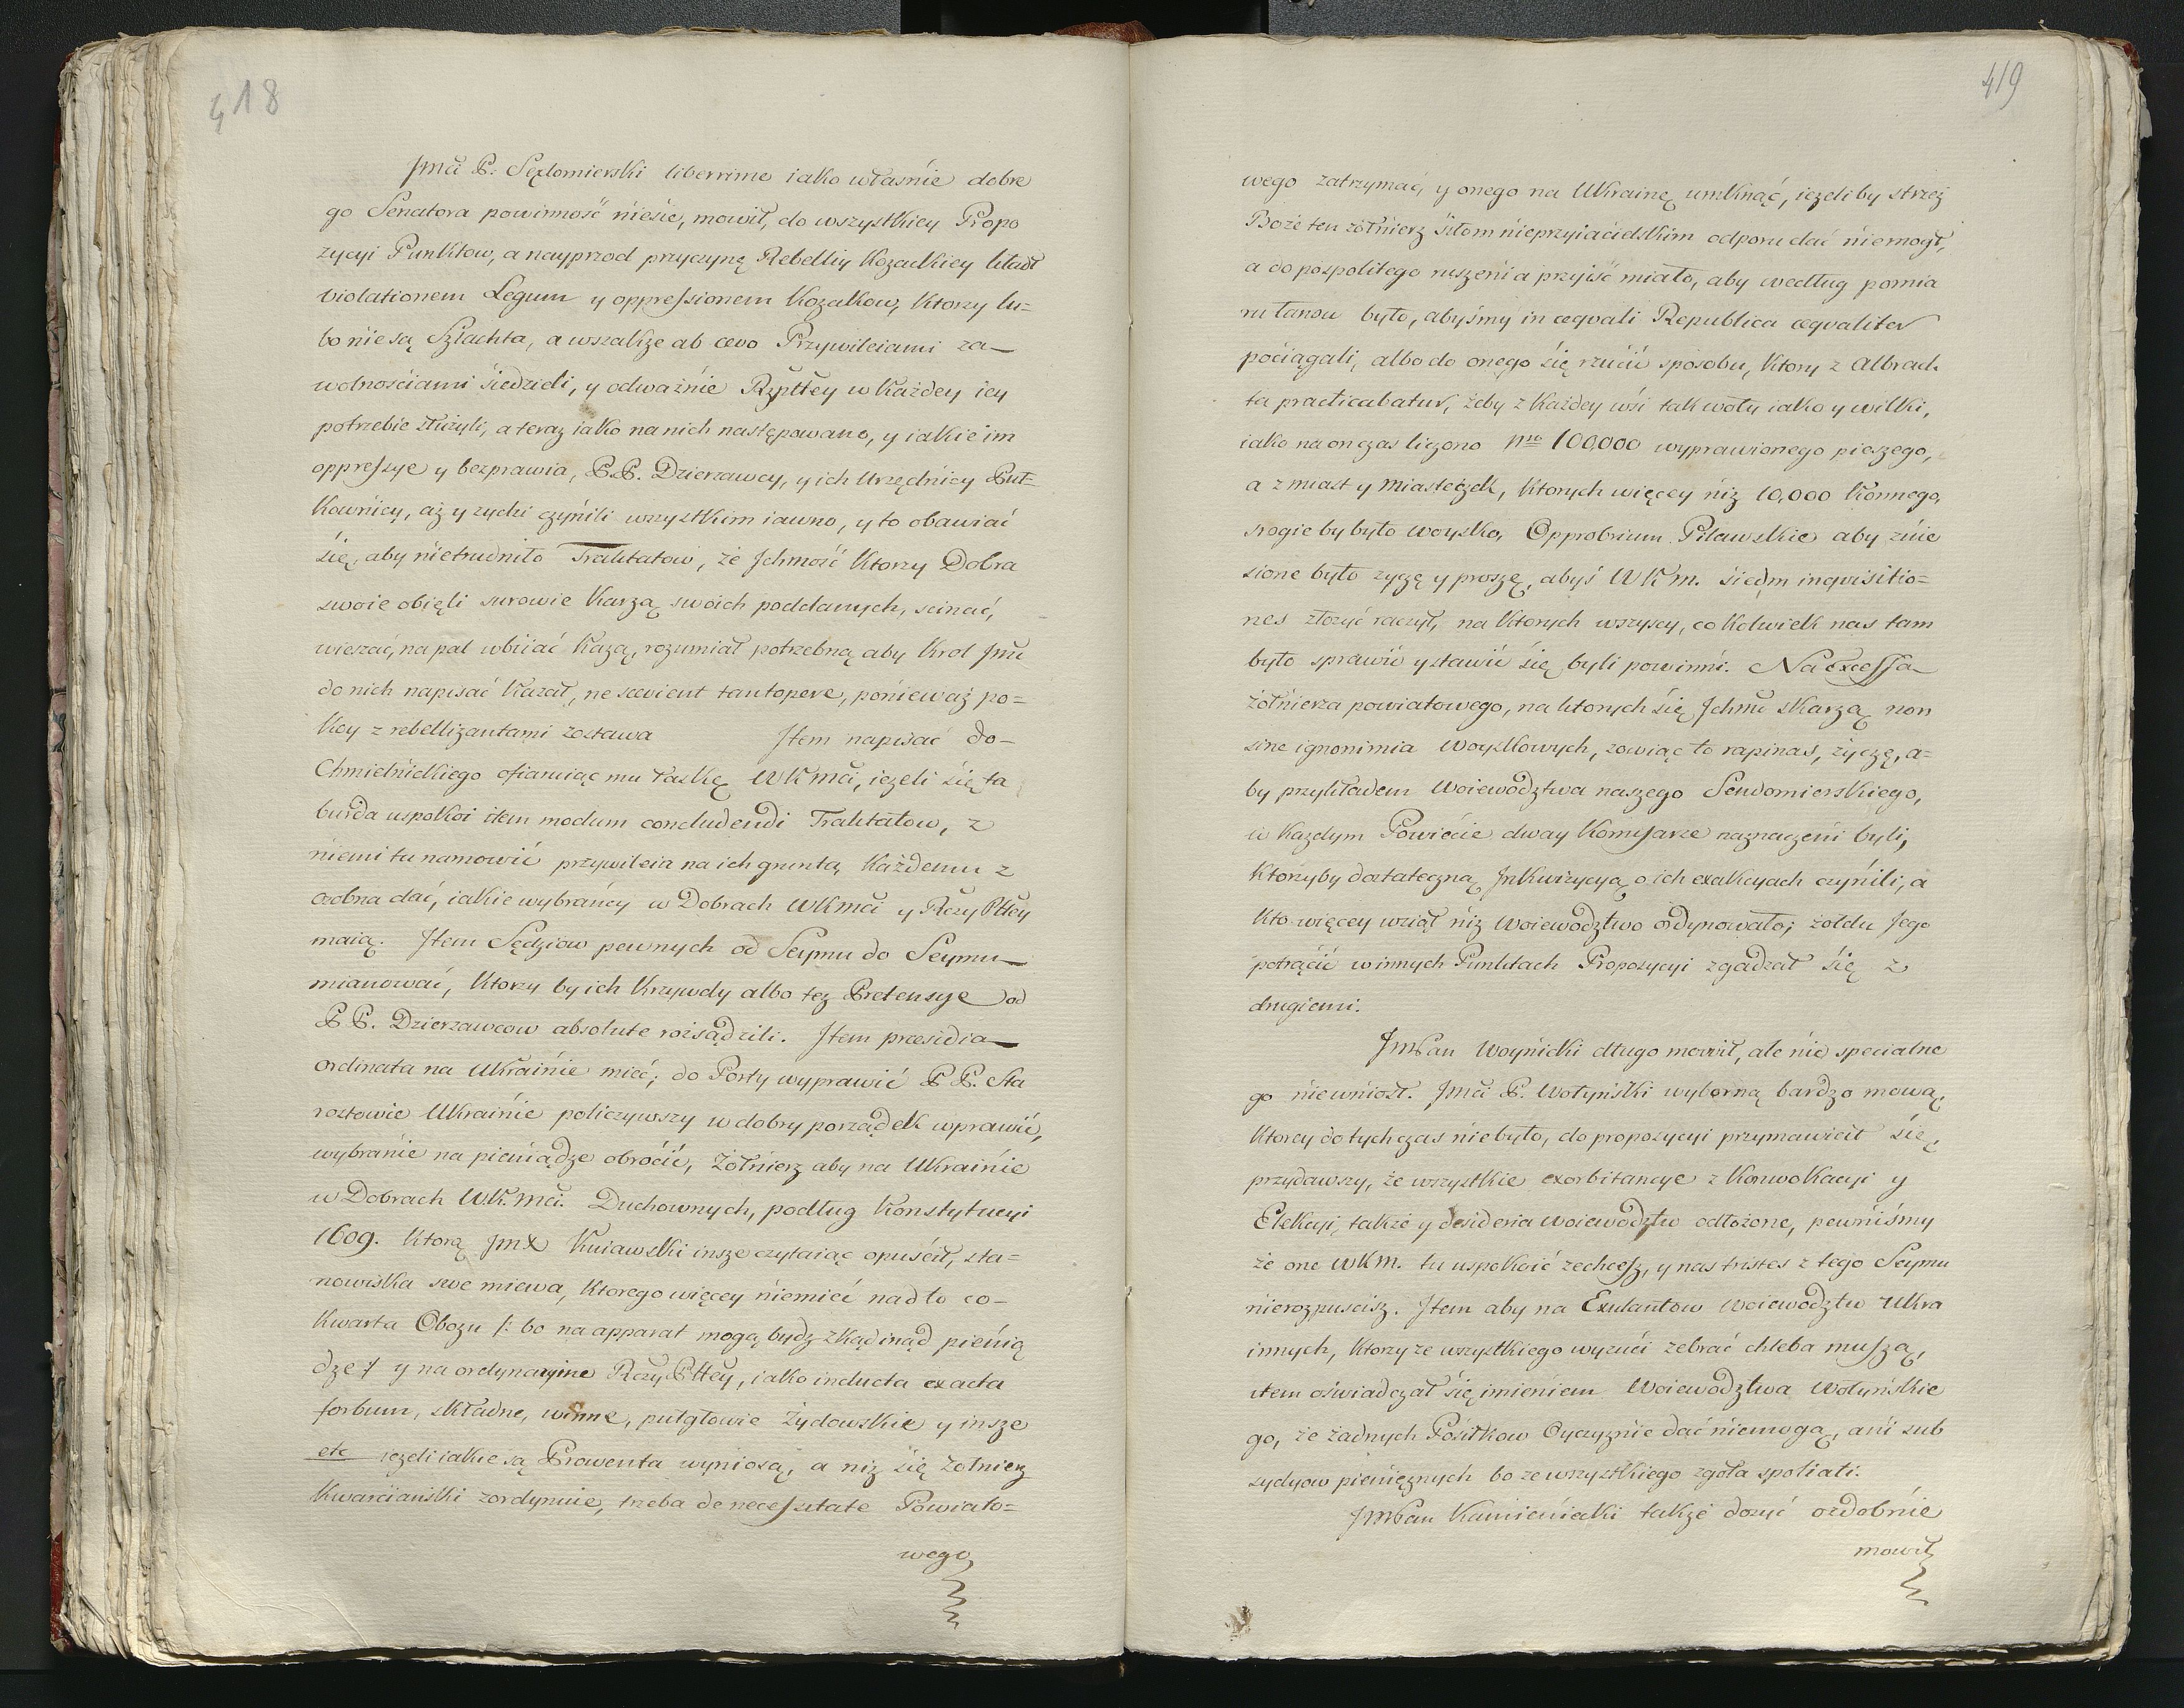 418
Jmći P. Sędomierski liberrime iako własnie dobre
go Senatora powinność niesie, mowił, do wszystkiey Propo
zycyi Punktow, a nayprzod przyczynę Rebelliy Kozackiey kładł
violationem Legum y oppressionem Kozakow, ktorzy lu=
bo nie są Szlachta, a wszakże ab ævo Przywileiami za
wolnosciami siedzieli, y odważnie Rzptłey w każdey iey
potrzebie służyli, a teraz iako na nich następowano, y iakie im
oppressye y bezprawia, P.P. Dzierzawcy, y ich Urzędnicy Puł=
kownicy, aż y zydzi czynili wszystkim iawno, y to obawiać
się, aby nietrudniło Traktatow, że Jchmość ktorzy Dobra
swoie obięli surowie karzą swoich poddanych, scinać,
wieszać, na pal wbiiać każą, rozumiał potrzebną aby Krol Jmć
do nich napisać kazał, ne sæviant tantopere, poniewaz po=
koy z rebellizantami zostawa Jtem napisać do
Chmielnickiego ofiaruiąc mu łaskę WKmći, ieżeli się ta
burda uspokoi item modum concludendi Traktatow, z
niemi tu namowić przywileia na ich grunta, każdemu z
osobna dać, iakie wybrańcy w Dobrach WKmći y Rzczy Ptłey
maią. Jtem Sędziow pewnych od Seymu do Seymu
mianować, ktorzy by ich krzywdy albo tez Pretensye od
P.P. Dzierzawcow absolute rozsądzili. Jtem præsidia
ordinata na Ukrainie mieć; do Porty wyprawić P P. Sta
rostowie Ukrainie policzywszy w dobry porządek wprawić,
wybranie na pieniądze obrocić, Zołnierz aby na Ukrainie
w Dobrach W.K.mći. Duchownych, podług Konstytucyi
1609. Ktorą JmX Kuiawski insze czytaiąc opuścił, sta=
nowiska swe miewa, ktorego więcey niemieć nad to co
kwarta Obozu /: bo na apparat mogą bydz zkądinąd pienią
dze / y na ordynaryine Rzczy Ptłey, iako inducta exacta
forbum, składne, winne, pułgłowie Zydowskie y insze
etc ieżeli iakie są Prowenta wyniosą, a niż się żołnierz
Kwarciański zordynuie, trzeba de necessitate Powiato=
wego
419
wego zatrzymać, y onego na Ukrainę umknąć, ieżeli by strzeż
Boże ten zołnierz siłom nieprzyiacielskim odporu dać niemogł,
a do pospolitego ruszenia przyiść miało, aby według pomia
ru łanou było, abyśmy in æqvali Republica æqvaliter
pociągali, albo do onego się rzucić sposobu, ktory z Albrach
ta practicabatur, żeby z każdey wsi tak woły iako y wilki,
iako na onczas liczono Nro 100,000 wyprawionego pieszego,
a z miast y miasteczek, ktorych więcey niz 10,000 konnego,
srogie by było woysko, Opprobrium Pilawskie aby znie
sione było zyczę y proszę, abyś WKm. siedm inqvisitio=
nes złożyć raczył, na ktorych wszyscy, co kolwiek nas tam
było sprawić y stawić się byli powinni. Na Excessa
żołnierza powiatowego, na ktorych się Jchmć skarzą non
sine ignonimia woyskowych, zowiąc to rapinas, zyczę, a=
by przykładem woiewodztwa naszego Sendomierskiego,
w każdym Powiecie dway Komisarze naznaczeni byli,
ktorzyby dostateczną Jnkwizycyą o ich exakcyach czynili, a
kto więcey wziął niż woiewodztwo ordynowało; żołdu Jego
potrącić w innych Punktach Propozycyi zgadzał się z
drugiemi.
JmPan Woynicki długo mowił, ale nic specialne
go niewniosł. Jmći P. Wołyński wyborną bardzo mową,
ktorey do tych czas niebyło, do propozycyi przymawiał się,
przydawszy, że wszystkie exorbitancye z Konwokacyi y
Elekcyi, także y desideria woiewodztw odłożone, pewniśmy
że one WKm. tu uspokoić zechcesz, y nas tristes z tego Seymu
nierozpuscisz. Jtem aby na Exulantow woiewodztw Ukra
innych, ktorzy ze wszystkiego wyzuci żebrać chleba muszą,
item oświadczał się imieniem Woiewodztwa Wołyńskie
go, że żadnych Posiłkow Oyczyznie dać niemogą, ani sub
sydyow pieniężnych bo ze wszystkiego zgoła spoliati.
JmPan Kamieniecki także dosyć ozdobnie
mowił